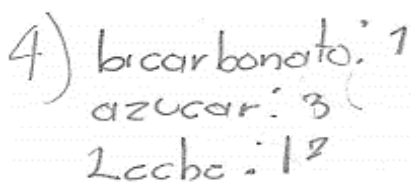 4) bicarbonato: 1
azucar: 3
Leche: 12